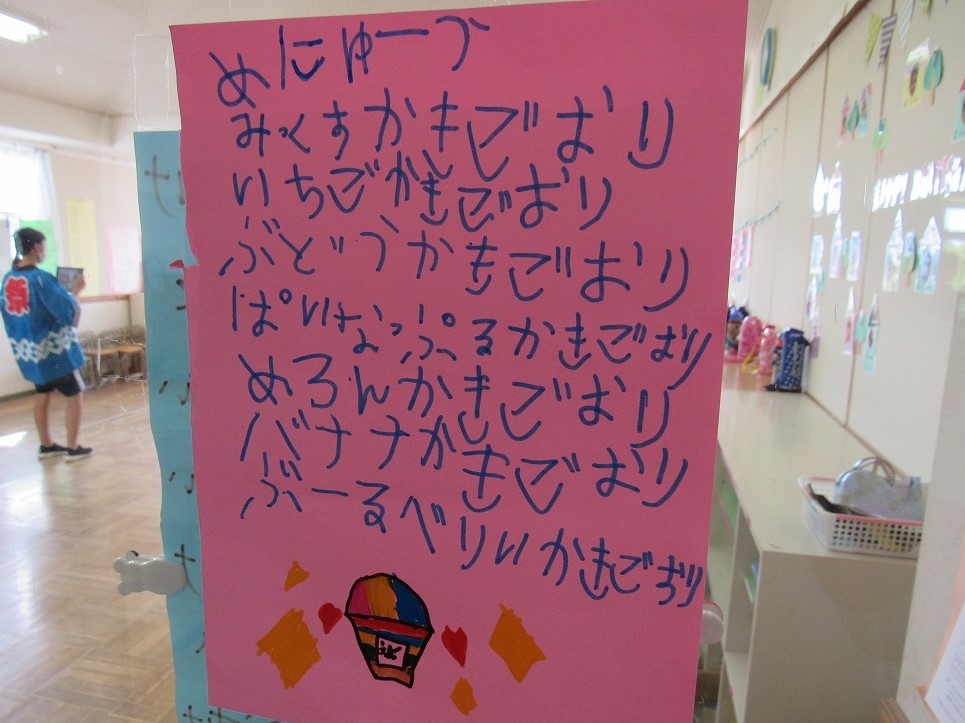 めにゅーう
みっくすかきごおり
いちごかきごおり
ぶどうかきごおり
ぱいなっぷるかきごおり
めろんかきごおり
バナナかきごおり
ぶーるべりいかきごおり
氷
祭